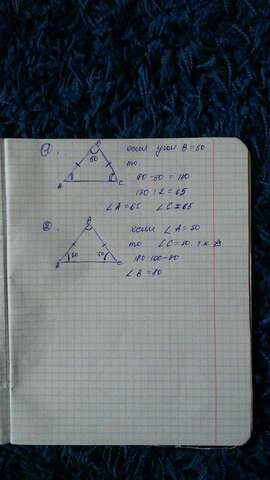 1.
если угол B = 50
B
50
то
180 - 50 = 130
130 : 2 = 65
A
C
∠A = 65 ∠C = 65
2.
если ∠A = 50
B
то ∠C = 50
180 - 100 = 80
50
50
A
C
∠B = 80